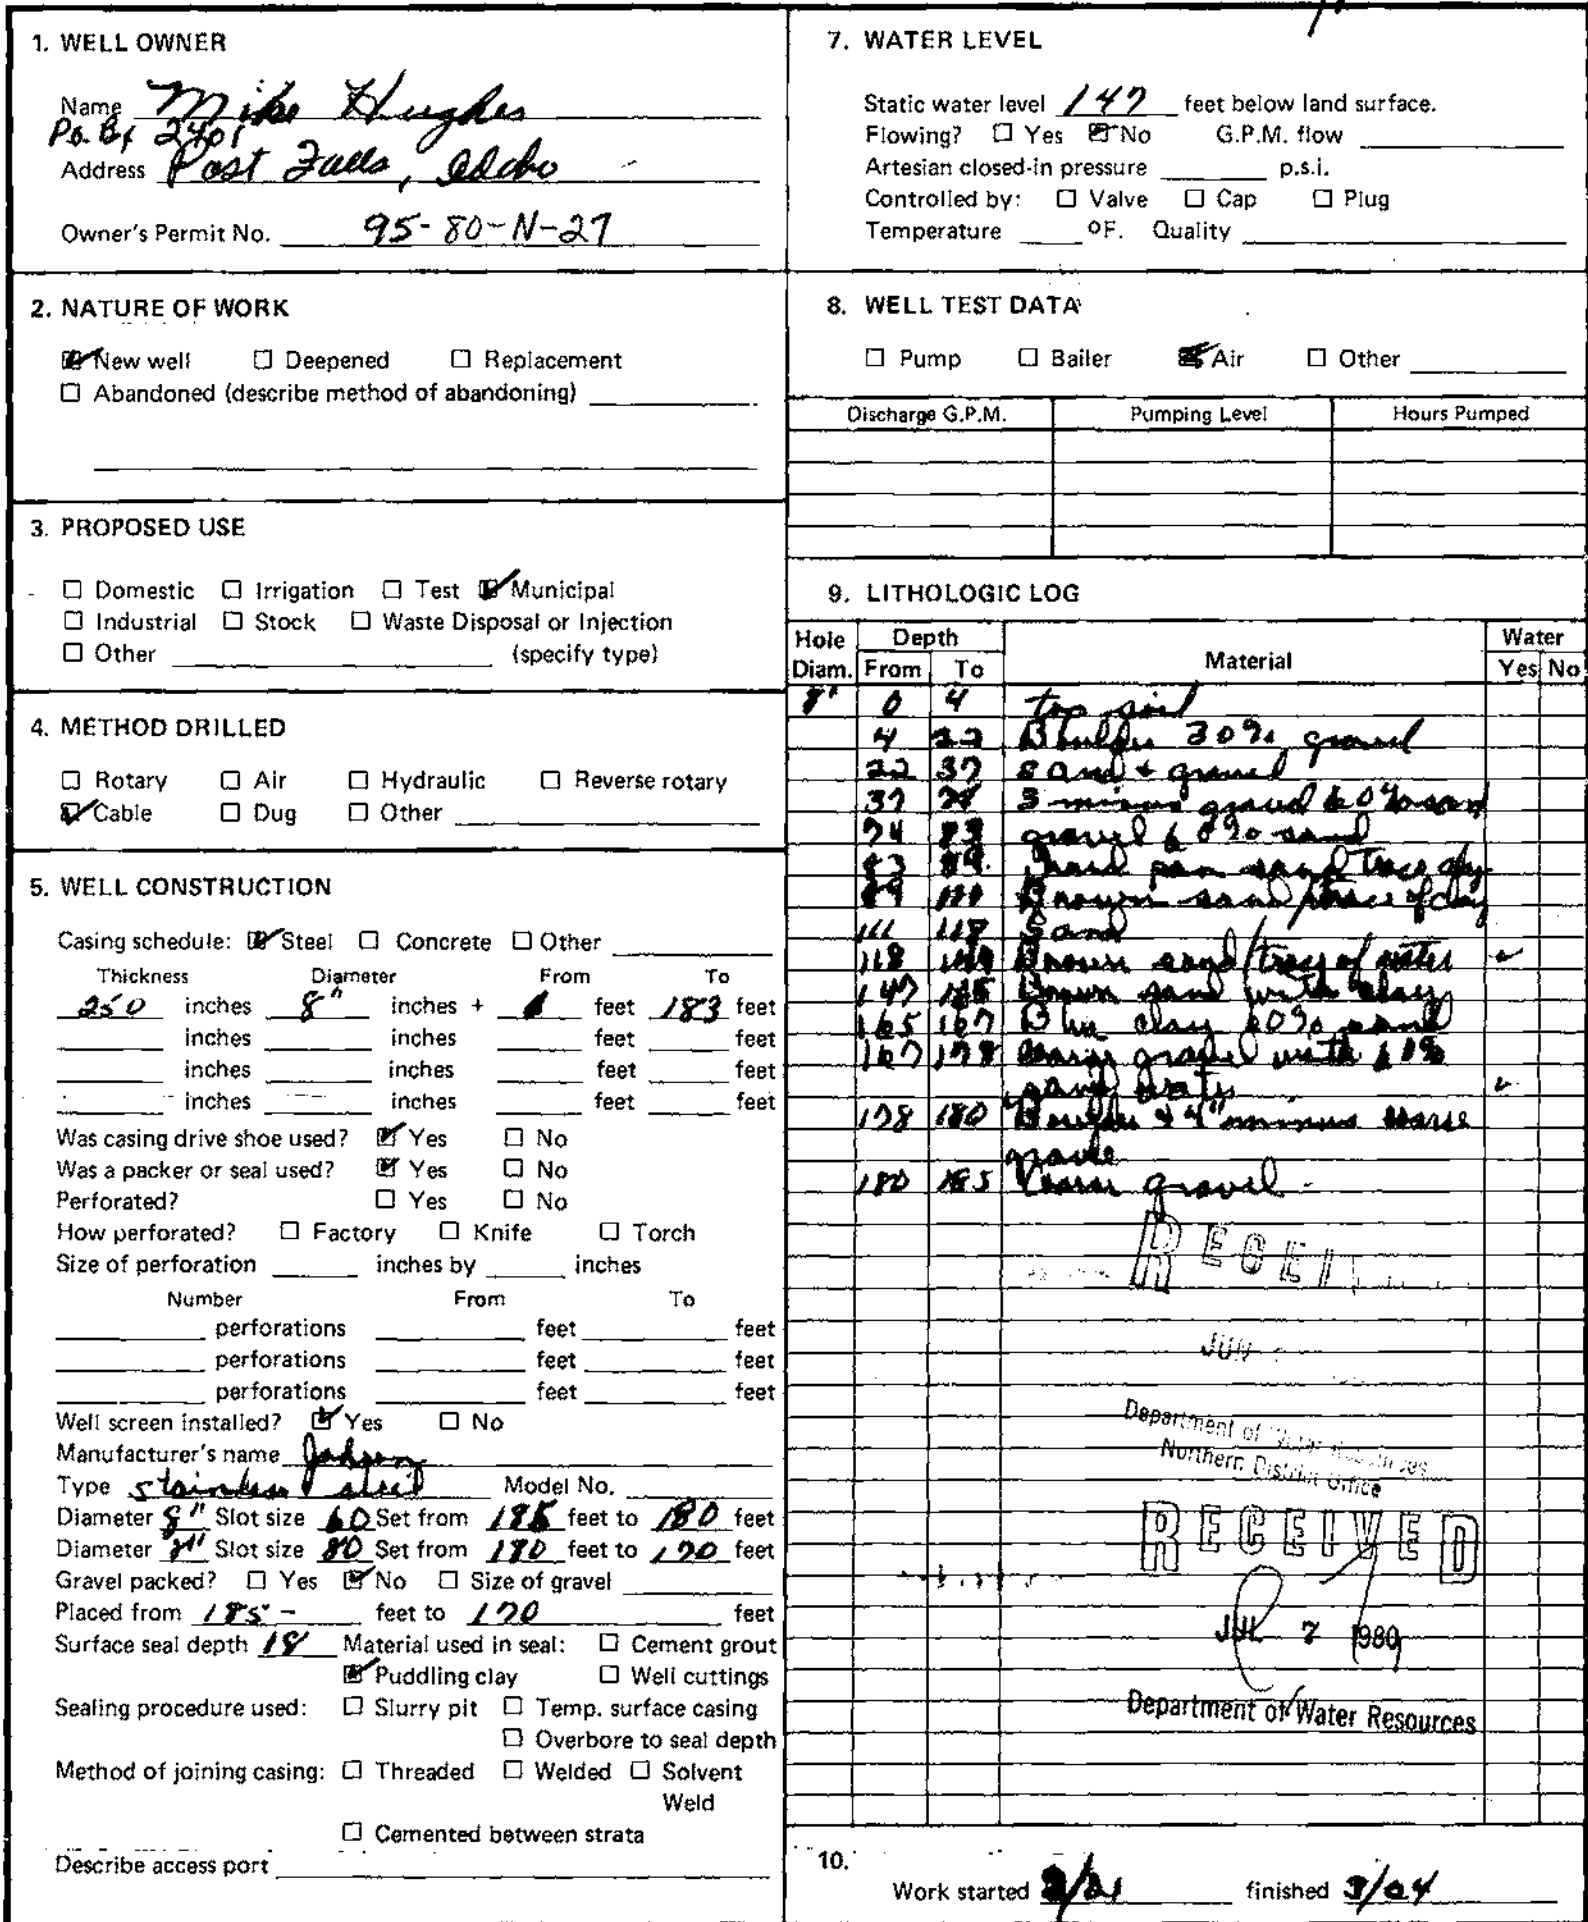 1. WELL OWNER
Name Mike Hughes
P.O. Bx 2401
Address Post Falls, Idaho
Owner's Permit No. 95-80-N-27
2. NATURE OF WORK
New well Deepened Replacement
Abandoned (describe method of abandoning)
3. PROPOSED USE
Domestic Irrigation Test Municipal
Industrial Stock Waste Disposal or Injection
Other (specify type)
4. METHOD DRILLED
Rotary Air Hydraulic Reverse rotary
Cable Dug Other
5. WELL CONSTRUCTION
Casing schedule: Steel Concrete Other
Thickness Diameter From To
250 inches 8" inches + feet 183 feet
inches inches feet feet
inches inches feet feet
inches inches feet feet
Was casing drive shoe used? Yes No
Was a packer or seal used? Yes No
Perforated? Yes No
How perforated? Factory Knife Torch
Size of perforation inches by inches
Number From To
perforations feet feet
perforations feet feet
perforations feet feet
Well screen installed? Yes No
Manufacturer's name
Type stainless steel Model No.
Diameter 8" Slot size 60 Set from 185 feet to 180 feet
Diameter 8" Slot size 80 Set from 180 feet to 170 feet
Gravel packed? Yes No Size of gravel
Placed from 185 - feet to 170 feet
Surface seal depth 18 Material used in seal: Cement grout
Puddling clay Well cuttings
Sealing procedure used: Slurry pit Temp. surface casing
Overbore to seal depth
Method of joining casing: Threaded Welded Solvent
Weld
Cemented between strata
Describe access port
7. WATER LEVEL
Static water level 147 feet below land surface.
Flowing? Yes No G.P.M. flow
Artesian closed-in pressure p.s.i.
Controlled by: Valve Cap Plug
Temperature °F. Quality
8. WELL TEST DATA
Pump Bailer Air Other
Discharge G.P.M. Pumping Level Hours Pumped
9. LITHOLOGIC LOG
Hole Depth Water
Diam. From To Material Yes No
8" 0 4 top soil
4 22 Boulder 30% gravel
22 37 sand + gravel
37 74 3 minus gravel 60% sand
74 83 gravel 60% sand
83 89 Hard pan sand trace clay
89 111 Brown sand/trace of clay
111 118 Sand
118 147 Brown sand/trace of water
147 165 Brown sand with clay
165 167 Blue clay 60% sand
167 178 coarse gravel with
sand
178 180 Boulder + 4" minus coarse
gravel
180 185 Coarse gravel
RECEI
JUN
Department of Water Resources
Northern District Office
RECEIVED
JUL 7 1980
Department of Water Resources
10.
Work started 2/21 finished 3/04